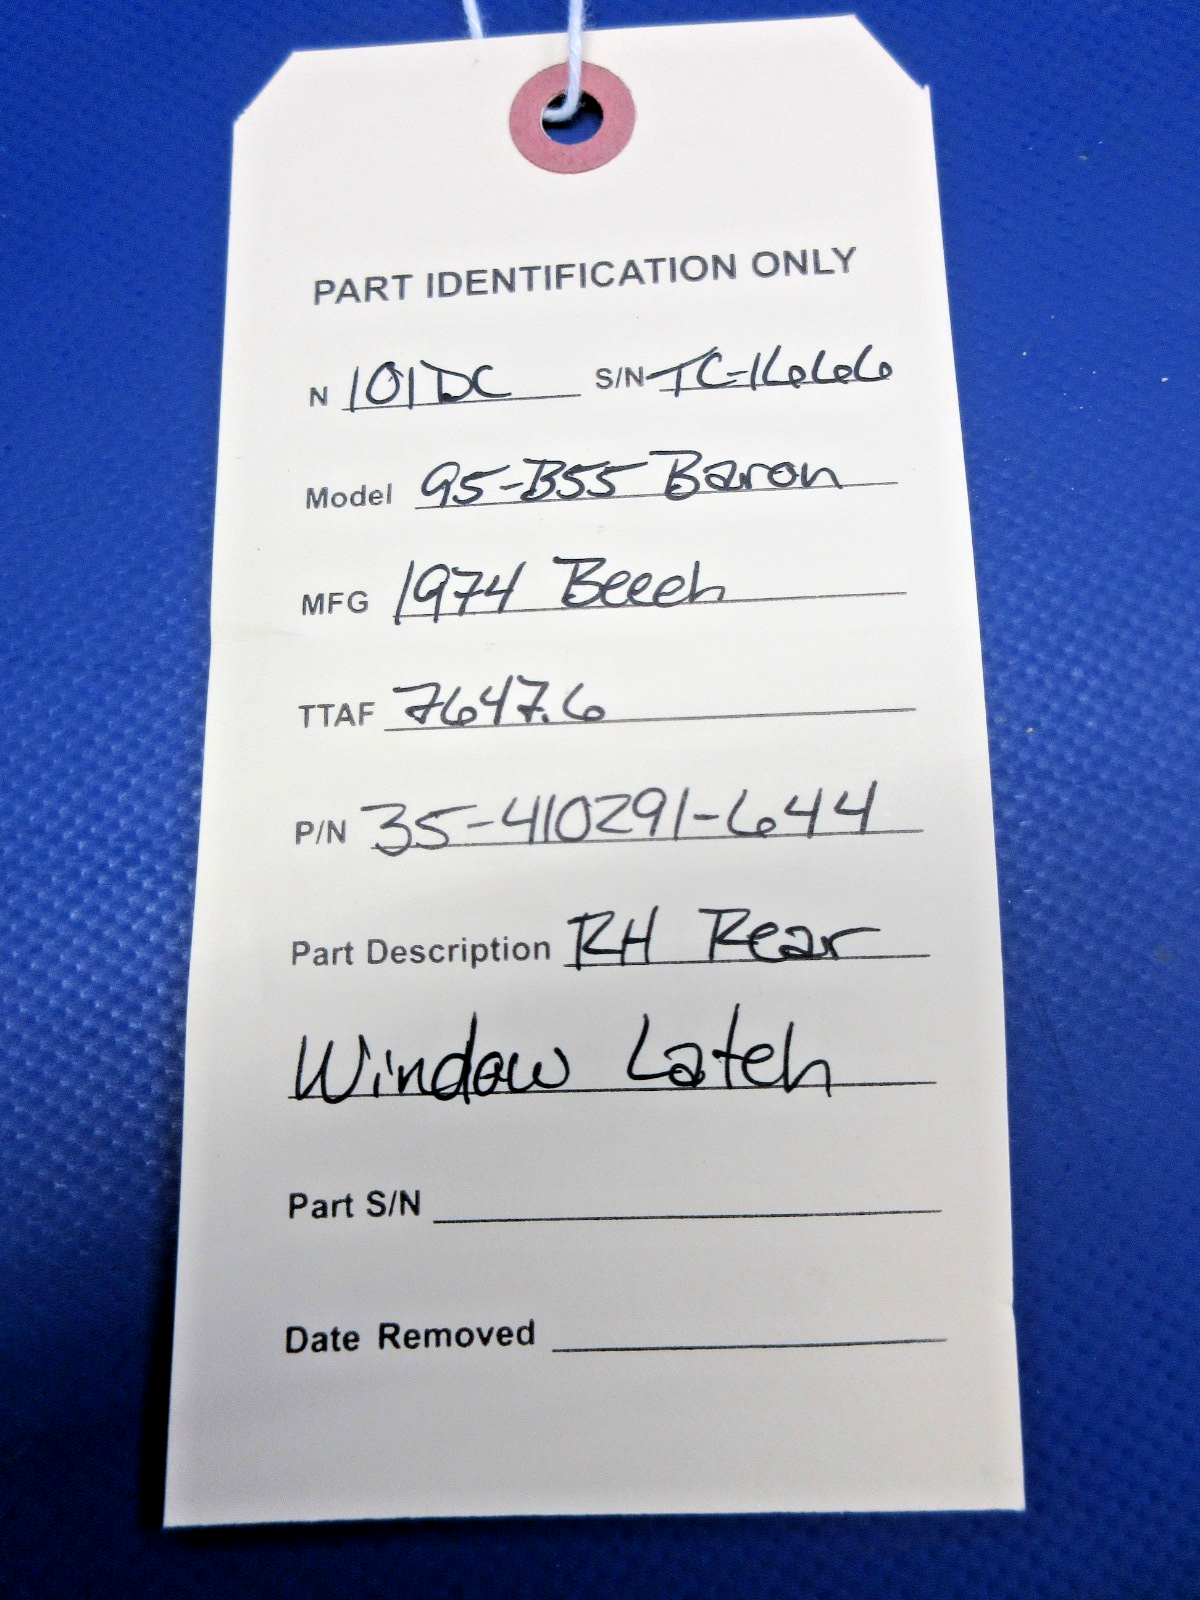 PART IDENTIFICATION ONLY
N 101DC S/N TC-1666
Model 95-B55 Baron
MFG 1974 Beech
TTAF 7647.6
P/N 35-410291-644
Part Description RH Rear
Window Latch
Part S/N
Date Removed